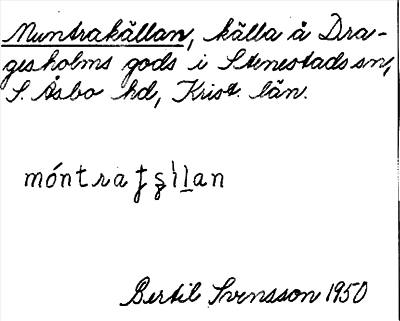 Muntrakällan, källa å Dra-
gesholms gods i Stenestads sn,
S. Åsbo hd, Krist. län.
móntraʈʂìl̲an
Bertil Svensson 1950